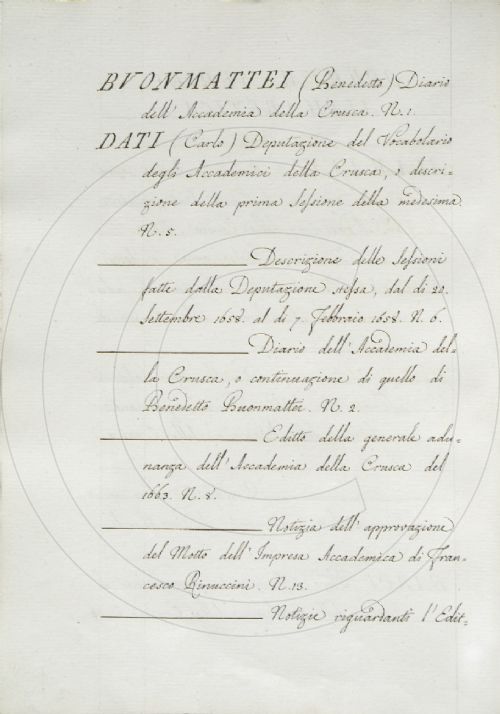 BVONMATTEI (Benedetto) Diario
dell' Accademia della Crusca. N. 1.
DATI (Carlo) Deputazione del Vocabolario
degli Accademici della Crusca, o descri-
zione della prima Sessione della medesima
N. 5.
Descrizione delle Sessioni
fatte dalla Deputazione stessa, dal di 20.
Settembre 1658. al di 7. Febbraio 1658. N. 6.
Diario dell' Accademia del-
la Crusca, o continuazione di quello di
Benedetto Buonmattei. N. 2.
Editto della generale adu-
nanza dell' Accademia della Crusca del
1663. N. 8.
Notizia dell' approvazione
del Motto dell' Impresa Accademica di Fran-
cesco Rinuccini. N. 13.
Notizie riguardanti l' Edit-